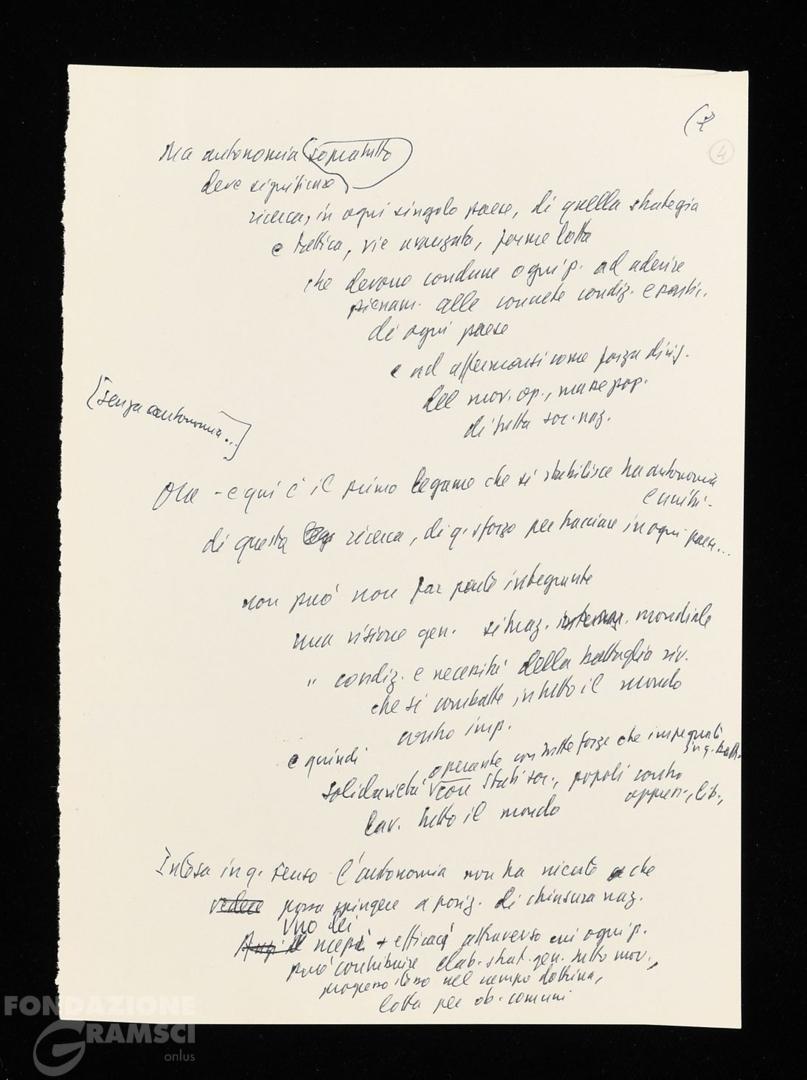 4
Ma autonomia soprattutto
deve significare
ricerca, in ogni singolo paese, di quella strategia
e tattica, vie avanzata, forme lotta
che devono condurre ogni p. ad aderire
pienam. alle concrete condiz. e partic.
di ogni paese
e ad affermarsi come forza dirig.
del mov. op., masse pop.
di tutta soc. naz.
[senza autonomia...]
Ora - e qui c'è il primo legame che si stabilisce tra autonomia
e unità -
di questa ricerca, di q. sforzo per tracciare in ogni paese...
non può non far parte integrante
una visione gen. situaz. mondiale
" condiz. e necessità della battaglia riv.
che si combatte in tutto il mondo
contro imp.
e quindi
operante con tutte forze che impegnati
in q. batt.
solidarietà con stati soc., popoli contro
oppress., lib.,
lav. tutto il mondo
Intesa in q. senso l'autonomia non ha niente che
vedere possa spingere a posiz. di chiusura naz.
Uno dei
+ efficaci attraverso cui ogni p.
può contribuire elab. strat. gen. tutto mov.,
progresso stesso nel campo dottrina,
lotta per ob. comuni
FONDAZIONE
GRAMSCI
onlus